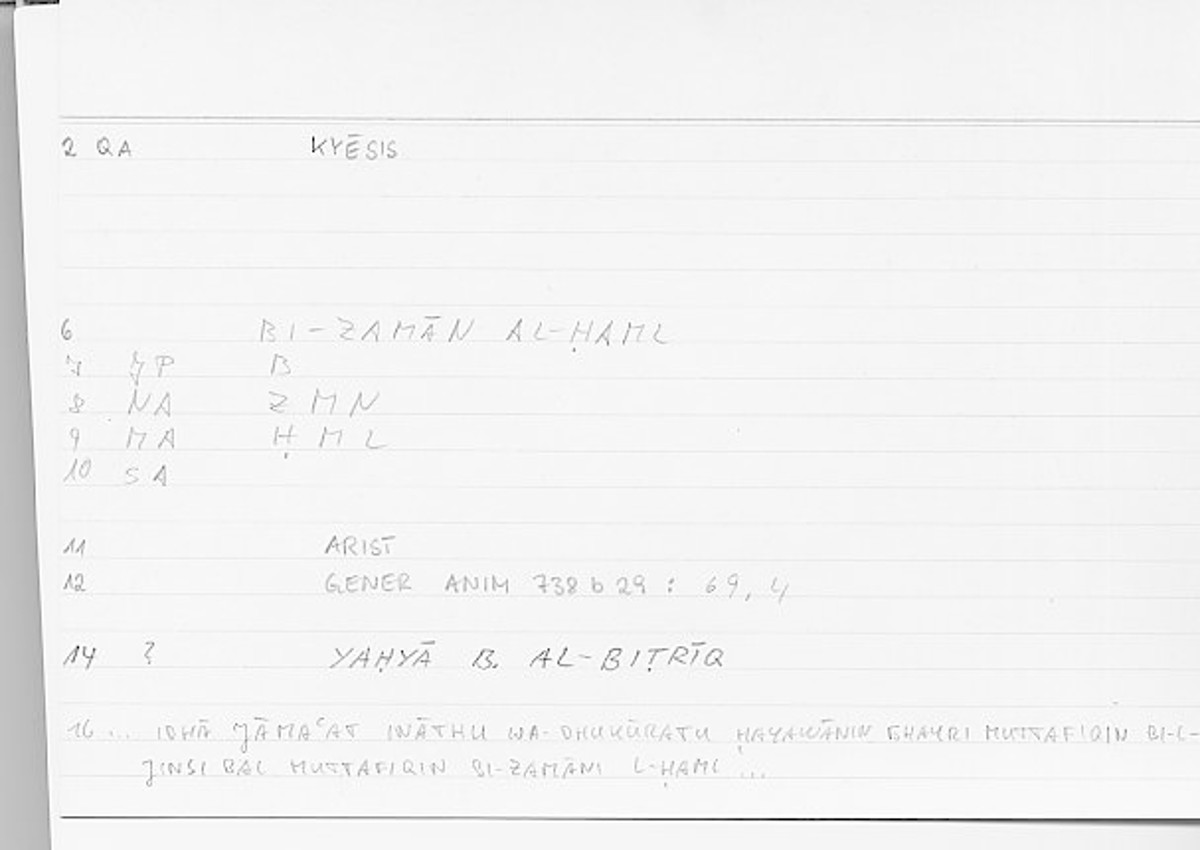 2 QA KYĒSIS
6 BI-ZAMĀN AL-ḤAML
7 JP B
8 NA Z M N
9 MA Ḥ M L
10 SA
11 ARIST
12 GENER ANIM 738 b 29 : 69, 4
14 ? YAḤYĀ B. AL-BIṬRĪQ
16 ... IDHĀ JĀMAʿAT INĀTHU WA-DHUKŪRATU ḤAYAWĀNIN GHAYRI MUTTAFIQIN BI-L-
JINSI BAL MUTTAFIQIN BI-ZAMĀNI L-ḤAML ...